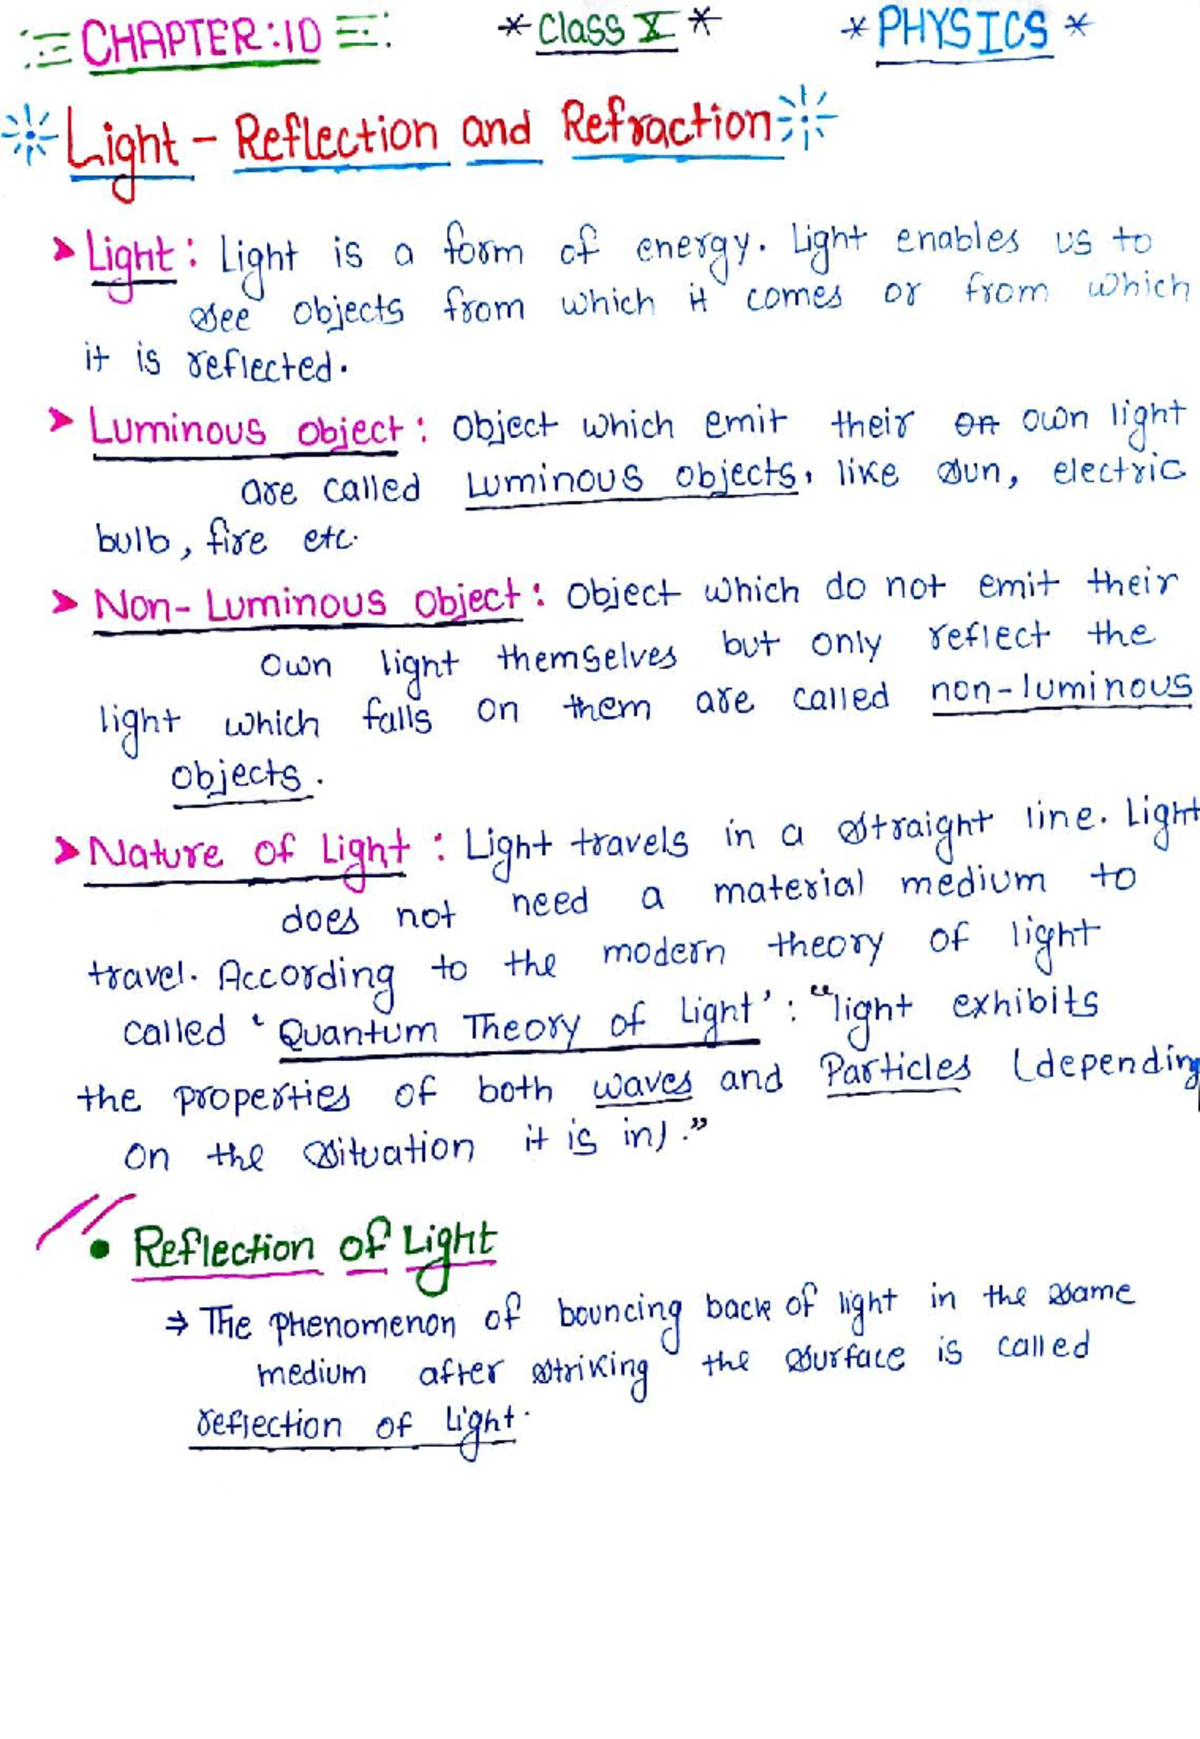 CHAPTER:10 * Class X * * PHYSICS *
Light - Reflection and Refraction
➤ Light: Light is a form of energy. Light enables us to
see objects from which it comes or from which
it is reflected.
➤ Luminous object: object which emit their on own light
are called Luminous objects, like sun, electric
bulb, fire etc.
➤ Non-Luminous object: object which do not emit their
own light themselves but only reflect the
light which falls on them are called non-luminous
objects.
➤ Nature of Light: Light travels in a straight line. Light
does not need a material medium to
travel. According to the modern theory of light
called ‘Quantum Theory of Light’: “light exhibits
the properties of both waves and Particles (depending
on the situation it is in).”
• Reflection of Light
⇒ The phenomenon of bouncing back of light in the same
medium after striking the surface is called
reflection of light.